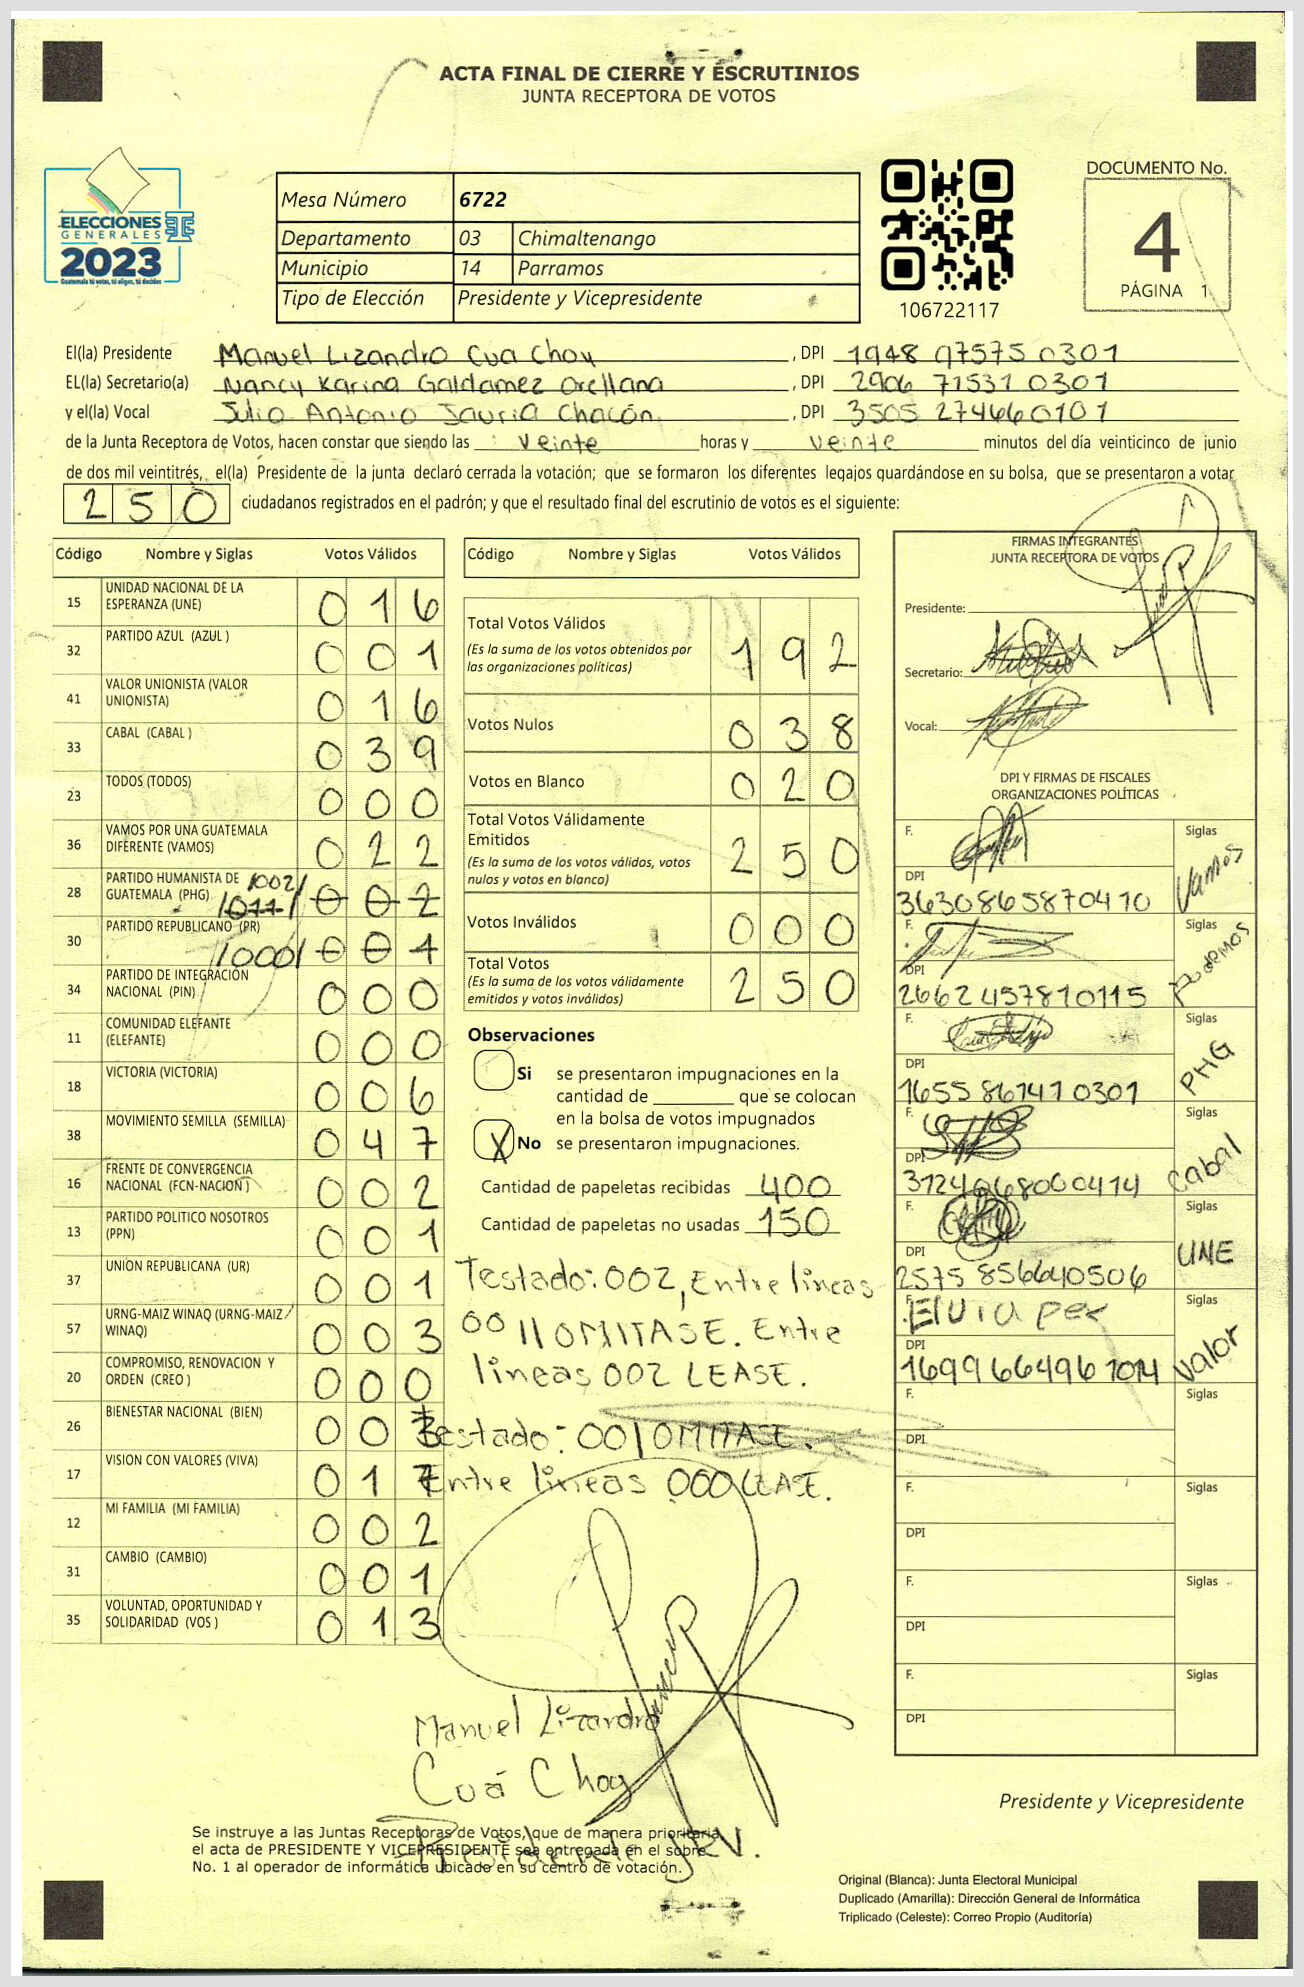 ACTA FINAL DE CIERRE Y ESCRUTINIOS
JUNTA RECEPTORA DE VOTOS
ELECCIONES
GENERALES
2023
Guatemala tú votas, tú eliges, tú decides
Mesa Número 6722
Departamento 03 Chimaltenango
Municipio 14 Parramos
Tipo de Elección Presidente y Vicepresidente
106722117
DOCUMENTO No.
4
PÁGINA 1
El(la) Presidente Manuel Lizandro Cua Choy, DPI 1948 97575 0301
EL(la) Secretario(a) Nancy Karina Galdamez Orellana, DPI 2906 71531 0301
y el(la) Vocal Julio Antonio Chacón, DPI 3505 27466 0101
de la Junta Receptora de Votos, hacen constar que siendo las veinte horas y veinte minutos del día veinticinco de junio
de dos mil veintitrés, el(la) Presidente de la junta declaró cerrada la votación; que se formaron los diferentes legajos quardándose en su bolsa, que se presentaron a votar
250 ciudadanos registrados en el padrón; y que el resultado final del escrutinio de votos es el siguiente:
Código Nombre y Siglas Votos Válidos
15 UNIDAD NACIONAL DE LA ESPERANZA (UNE) 016
32 PARTIDO AZUL (AZUL ) 001
41 VALOR UNIONISTA (VALOR UNIONISTA) 016
33 CABAL (CABAL ) 039
23 TODOS (TODOS) 000
36 VAMOS POR UNA GUATEMALA DIFERENTE (VAMOS) 022
28 PARTIDO HUMANISTA DE GUATEMALA (PHG) /002/ /011/ 002
30 PARTIDO REPUBLICANO (PR) /000/ 001
34 PARTIDO DE INTEGRACIÓN NACIONAL (PIN) 000
11 COMUNIDAD ELEFANTE (ELEFANTE) 000
18 VICTORIA (VICTORIA) 006
38 MOVIMIENTO SEMILLA (SEMILLA) 047
16 FRENTE DE CONVERGENCIA NACIONAL (FCN-NACION ) 002
13 PARTIDO POLITICO NOSOTROS (PPN) 001
37 UNION REPUBLICANA (UR) 001
57 URNG-MAIZ WINAQ (URNG-MAIZ WINAQ) 003
20 COMPROMISO, RENOVACION Y ORDEN (CREO ) 000
26 BIENESTAR NACIONAL (BIEN) 003
17 VISION CON VALORES (VIVA) 017
12 MI FAMILIA (MI FAMILIA) 002
31 CAMBIO (CAMBIO) 001
35 VOLUNTAD, OPORTUNIDAD Y SOLIDARIDAD (VOS ) 013
Código Nombre y Siglas Votos Válidos
Total Votos Válidos 192
(Es la suma de los votos obtenidos por las organizaciones políticas)
Votos Nulos 038
Votos en Blanco 020
Total Votos Válidamente Emitidos 250
(Es la suma de los votos válidos, votos nulos y votos en blanco)
Votos Inválidos 000
Total Votos 250
(Es la suma de los votos válidamente emitidos y votos inválidos)
Observaciones
Si se presentaron impugnaciones en la
cantidad de ________ que se colocan
en la bolsa de votos impugnados
X No se presentaron impugnaciones.
Cantidad de papeletas recibidas 400
Cantidad de papeletas no usadas 150
Testado: 002, Entre lineas
0011 OMITASE. Entre
lineas 002 LEASE.
Testado: 001 OMITASE.
Entre lineas 000 LEASE.
Manuel Lizandro
Cuá Choy
Presidente JRV.
FIRMAS INTEGRANTES
JUNTA RECEPTORA DE VOTOS
Presidente:
Secretario:
Vocal:
DPI Y FIRMAS DE FISCALES
ORGANIZACIONES POLÍTICAS
F. Siglas Vamos
DPI 3630865870410
F. Siglas Podemos
DPI 2662457810115
F. Siglas PHG
DPI 1655 86741 0301
F. Siglas Cabal
DPI 3124068000414
F. Siglas UNE
DPI 2575 856640506
F. Elvia per Siglas Valor
DPI 1699 66496
F. Siglas
DPI
F. Siglas
DPI
F. Siglas
DPI
F. Siglas
DPI
Presidente y Vicepresidente
Se instruye a las Juntas Receptoras de Votos, que de manera prioritaria
el acta de PRESIDENTE Y VICEPRESIDENTE sea entregada en el sobre
No. 1 al operador de informática ubicado en su centro de votación.
Original (Blanca): Junta Electoral Municipal
Duplicado (Amarilla): Dirección General de Informática
Triplicado (Celeste): Correo Propio (Auditoría)